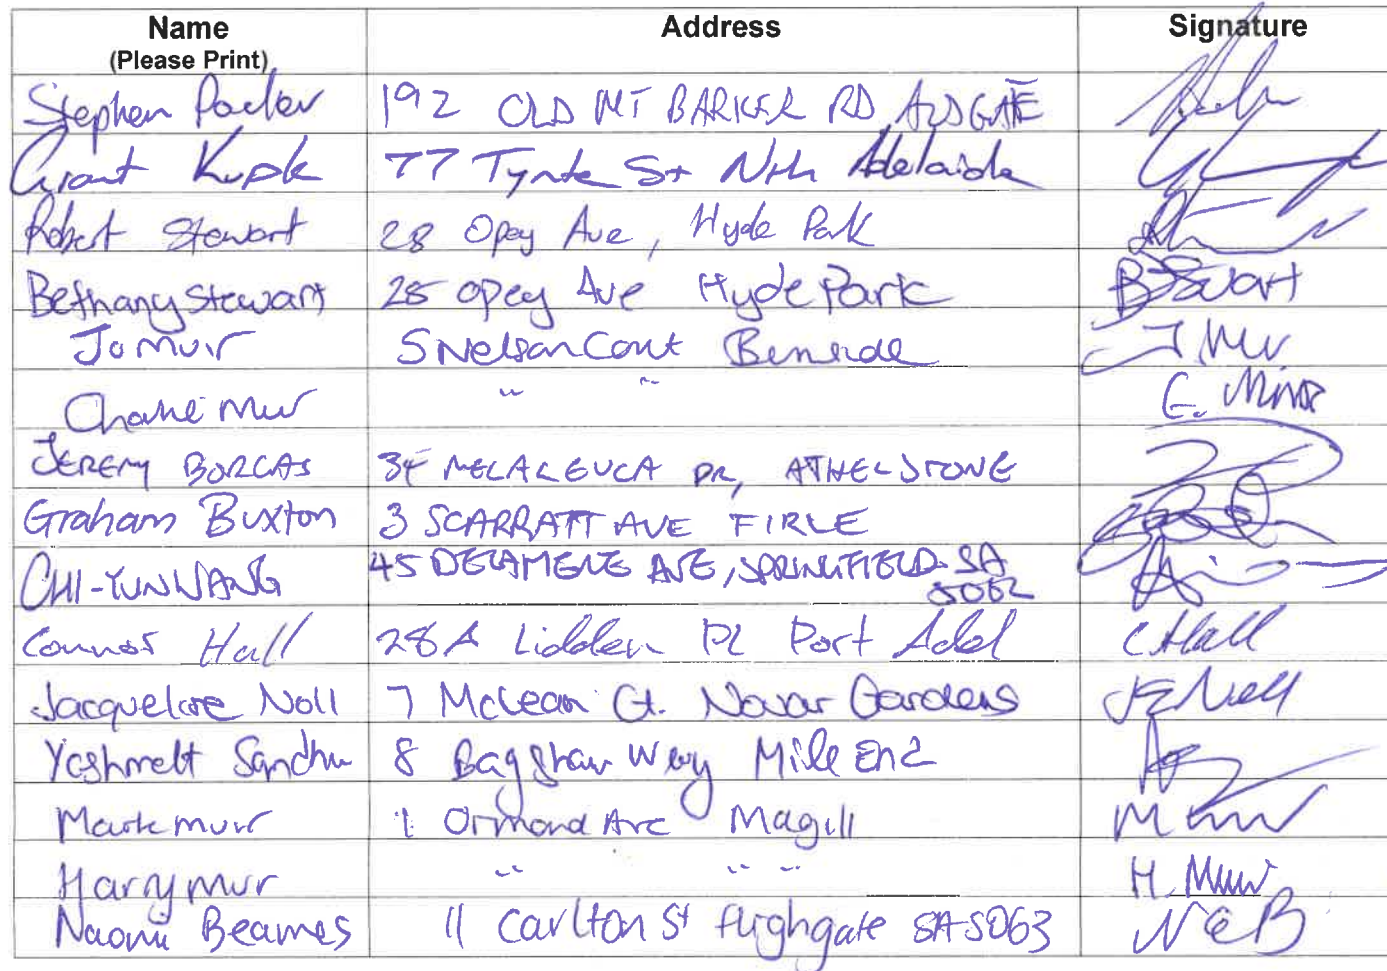 Name Address Signature
(Please Print)
Stephen Packer 192 OLD MT BARKER RD ALDGATE
Grant 77 Tynte St Nth Adelaide
Robert Stewart 28 Opey Ave, Hyde Park
Bethany Stewart 28 opey Ave Hyde Park B Stewart
Jo Muir 5 Nelson Court J Muir
Charlie Muir " " C. Muir
JEREMY BORCAS 34 MELALEUCA DR, ATHELSTONE
Graham Buxton 3 SCARRATT AVE FIRLE
CHI-YUN WANG 45 DELAMERE AVE, SPRINGFIELD SA
5062
Connor Hall 28A Lidden Pl Port Adel C Hall
Jacqueline Noll 7 McLean Ct. Novar Gardens J E Noll
Sandhu 8 Bagshaw Way Mile End
Mark muir 1 Ormond Ave Magill M Muir
Harry Muir " " " H. Muir
Naomi Beames 11 Carlton St Highgate SA 5063 N e B